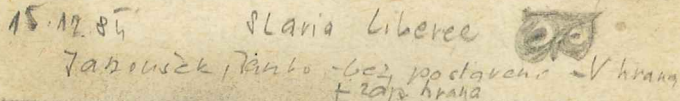 15.12.84 Slavia Liberec
Janoušek, - bez postaveno - V hrana
+ záp hrana